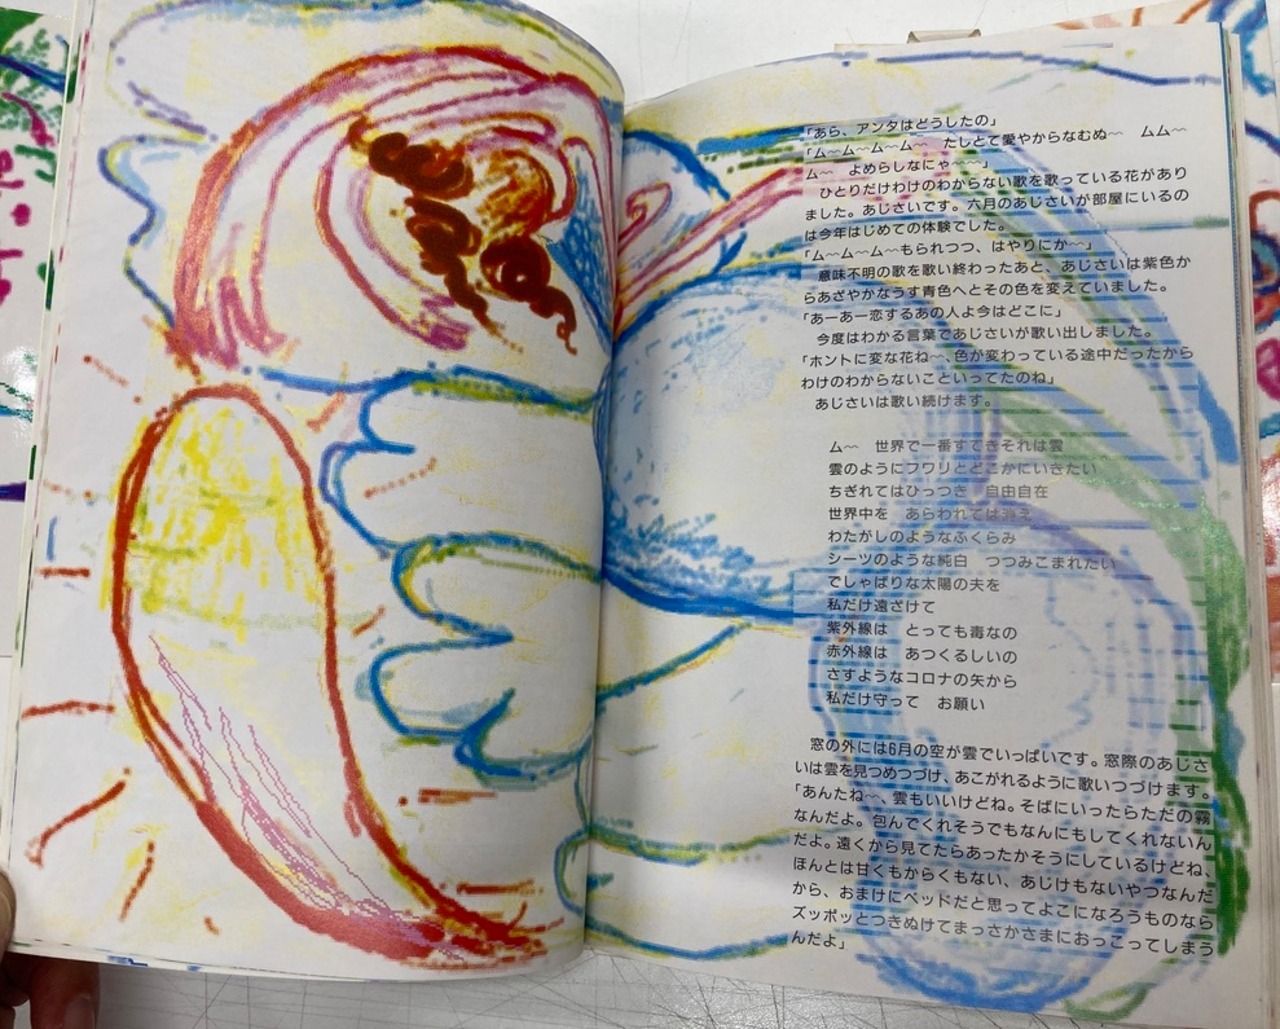 「あら、アンタはどうしたの」
「ム〜ム〜ム〜ム〜　たしとて愛やからなむぬ〜　ムム〜
ム〜　よめらしなにゃ〜〜」
　ひとりだけわけのわからない歌を歌っている花があり
ました。あじさいです。六月のあじさいが部屋にいるの
は今年はじめての体験でした。
「ム〜ム〜ム〜もられつつ、はやりにか〜」
　意味不明の歌を歌い終わったあと、あじさいは紫色か
らあざやかなうす青色へとその色を変えていました。
「あーあー恋するあの人よ今はどこに」
　今度はわかる言葉であじさいが歌い出しました。
「ホントに変な花ね〜、色が変わっている途中だったから
わけのわからないこといってたのね」
　あじさいは歌い続けます。
ム〜　世界で一番すてきそれは雲
雲のようにフワリとどこかにいきたい
ちぎれてはひっつき　自由自在
世界中を　あらわれては消え
わたがしのようなふくらみ
シーツのような純白　つつみこまれたい
でしゃばりな太陽の夫を
私だけ遠ざけて
紫外線は　とっても毒なの
赤外線は　あつくるしいの
さすようなコロナの矢から
私だけ守って　お願い
　窓の外には6月の空が雲でいっぱいです。窓際のあじさ
いは雲を見つめつづけ、あこがれるように歌いつづけます。
「あんたね〜、雲もいいけどね。そばにいったらただの霧
なんだよ。包んでくれそうでもなんにもしてくれないん
だよ。遠くから見てたらあったかそうにしているけどね、
ほんとは甘くもからくもない、あじけもないやつなんだ
から、おまけにベッドだと思ってよこになろうものなら
ズッポッとつきぬけてまっさかさまにおっこってしまう
んだよ」